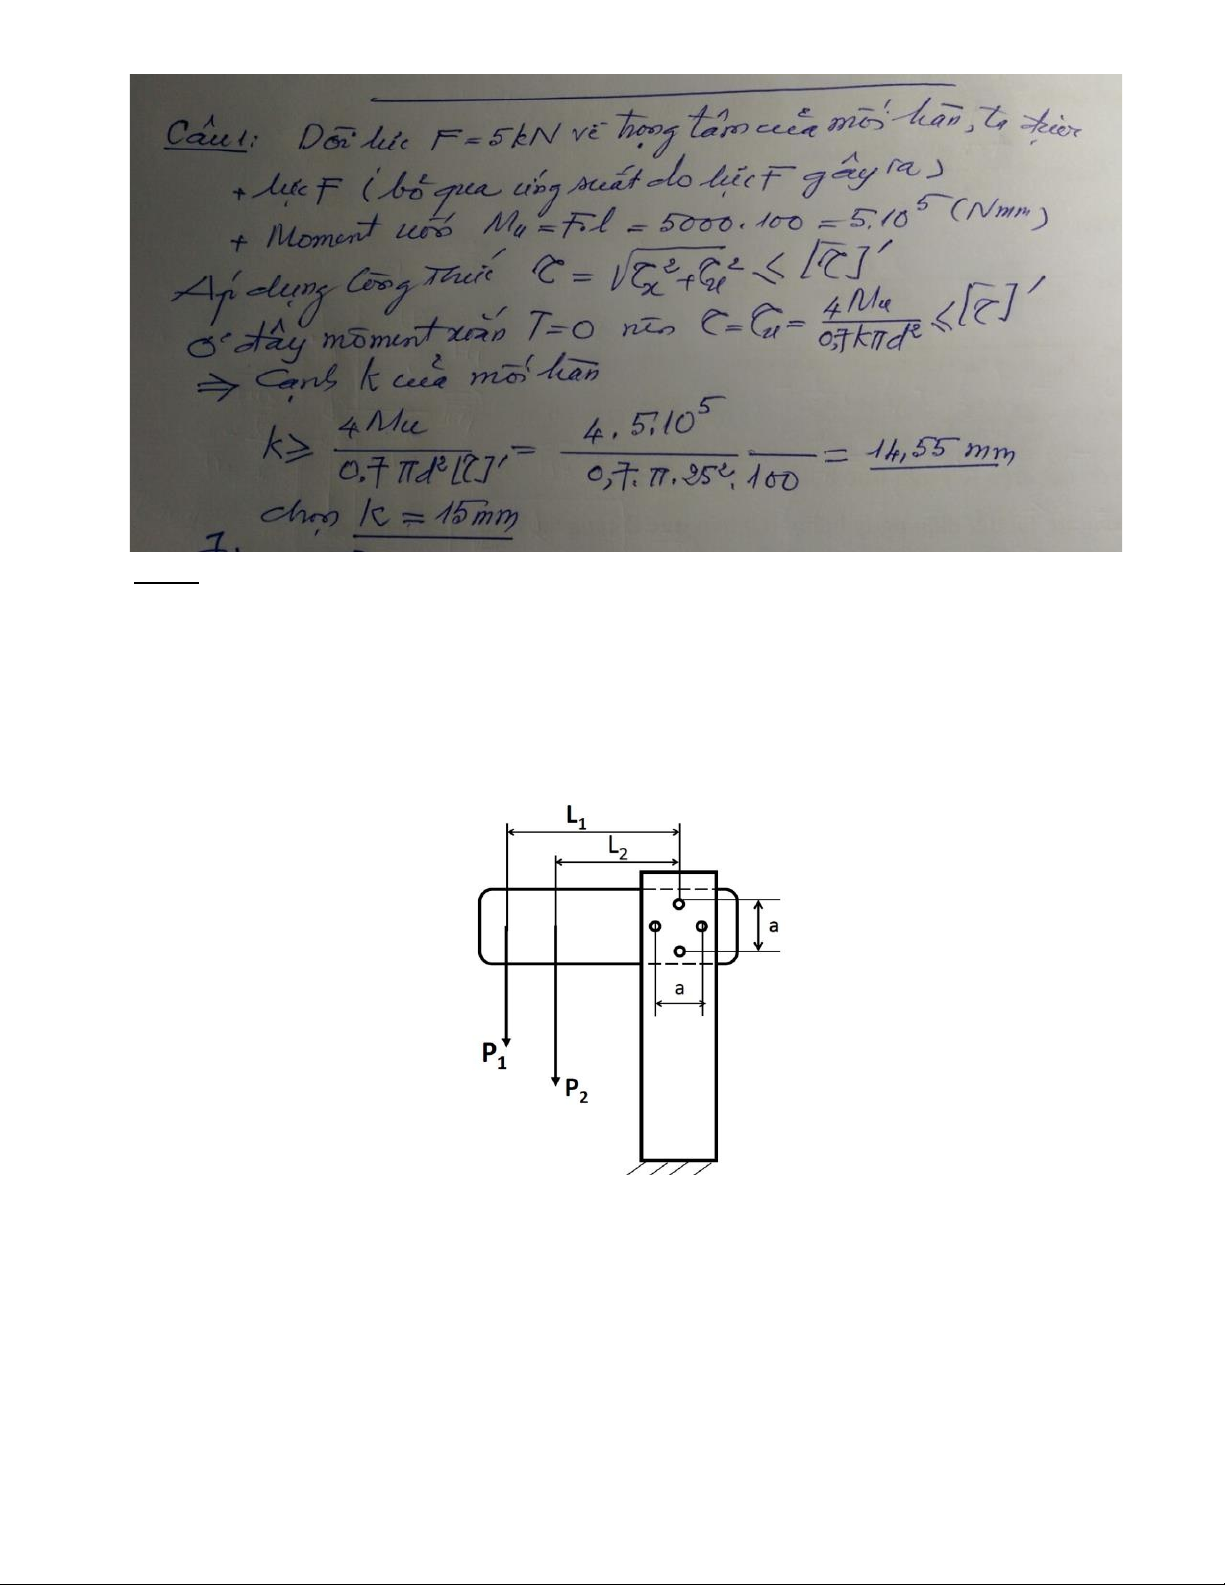 Câu 1: Dời lực F = 5kN về trọng tâm của mối hàn, ta được
+ lực F (bỏ qua ứng suất do lực F gây ra)
+ Moment uốn Mu = F.l = 5000.100 = 5.10⁵ (Nmm)
Áp dụng công thức τ = √(τx² + τu²) ≤ [τ]'
Ở đây moment xoắn T = 0 nên τ = τu = 4Mu / 0,7kπd² ≤ [τ]'
⇒ Cạnh k của mối hàn
k ≥ 4Mu / 0.7πd²[τ]' = 4.5.10⁵ / 0,7.π.25².100 = 14,55 mm
chọn k = 15mm
L1
L2
a
a
P1
P2